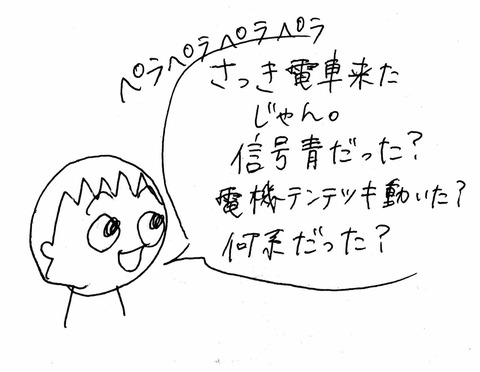 ペラペラペラペラ
さっき電車来た
じゃん。
信号青だった?
電機テンテツキ動いた?
何系だった?